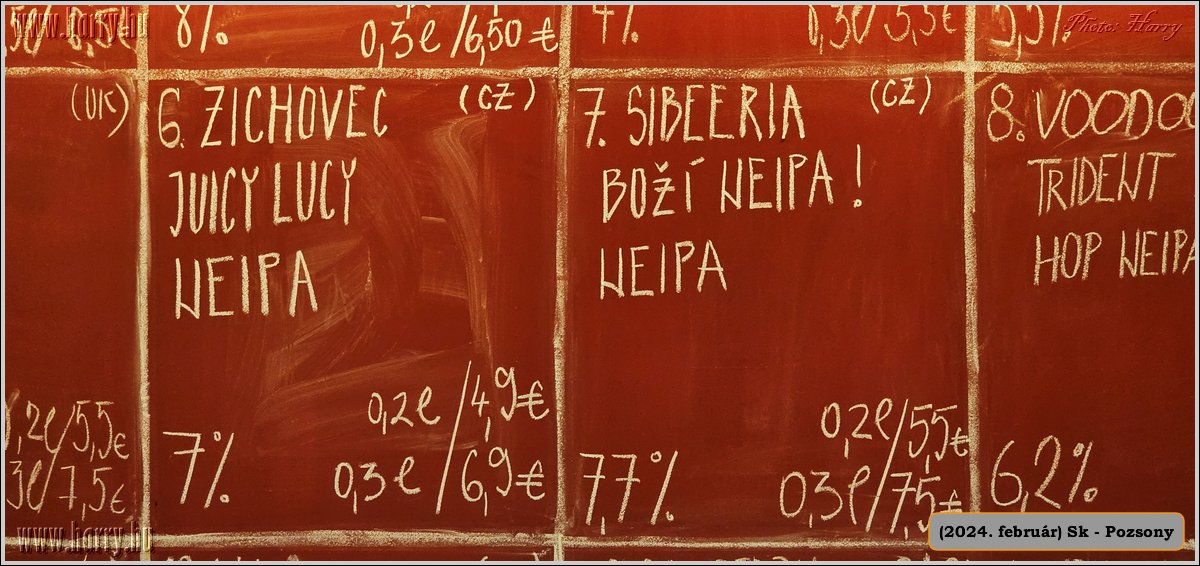 www.harry.hu
8%
0,3l/6,50€
Photo: Harry
(UK)
0,2l/5,5€
3l/7,5€
6. ZICHOVEC (CZ)
JUICY LUCY
NEIPA
0,2l/4,9€
7%
0,3l/6,9€
7. SIBEERIA (CZ)
BOŽÍ NEIPA!
NEIPA
0,2l/5,5€
7,7%
0,3l/7,5€
8. VOODOO
TRIDENT
HOP NEIPA
6,2%
www.harry.hu
(2024. február) Sk - Pozsony